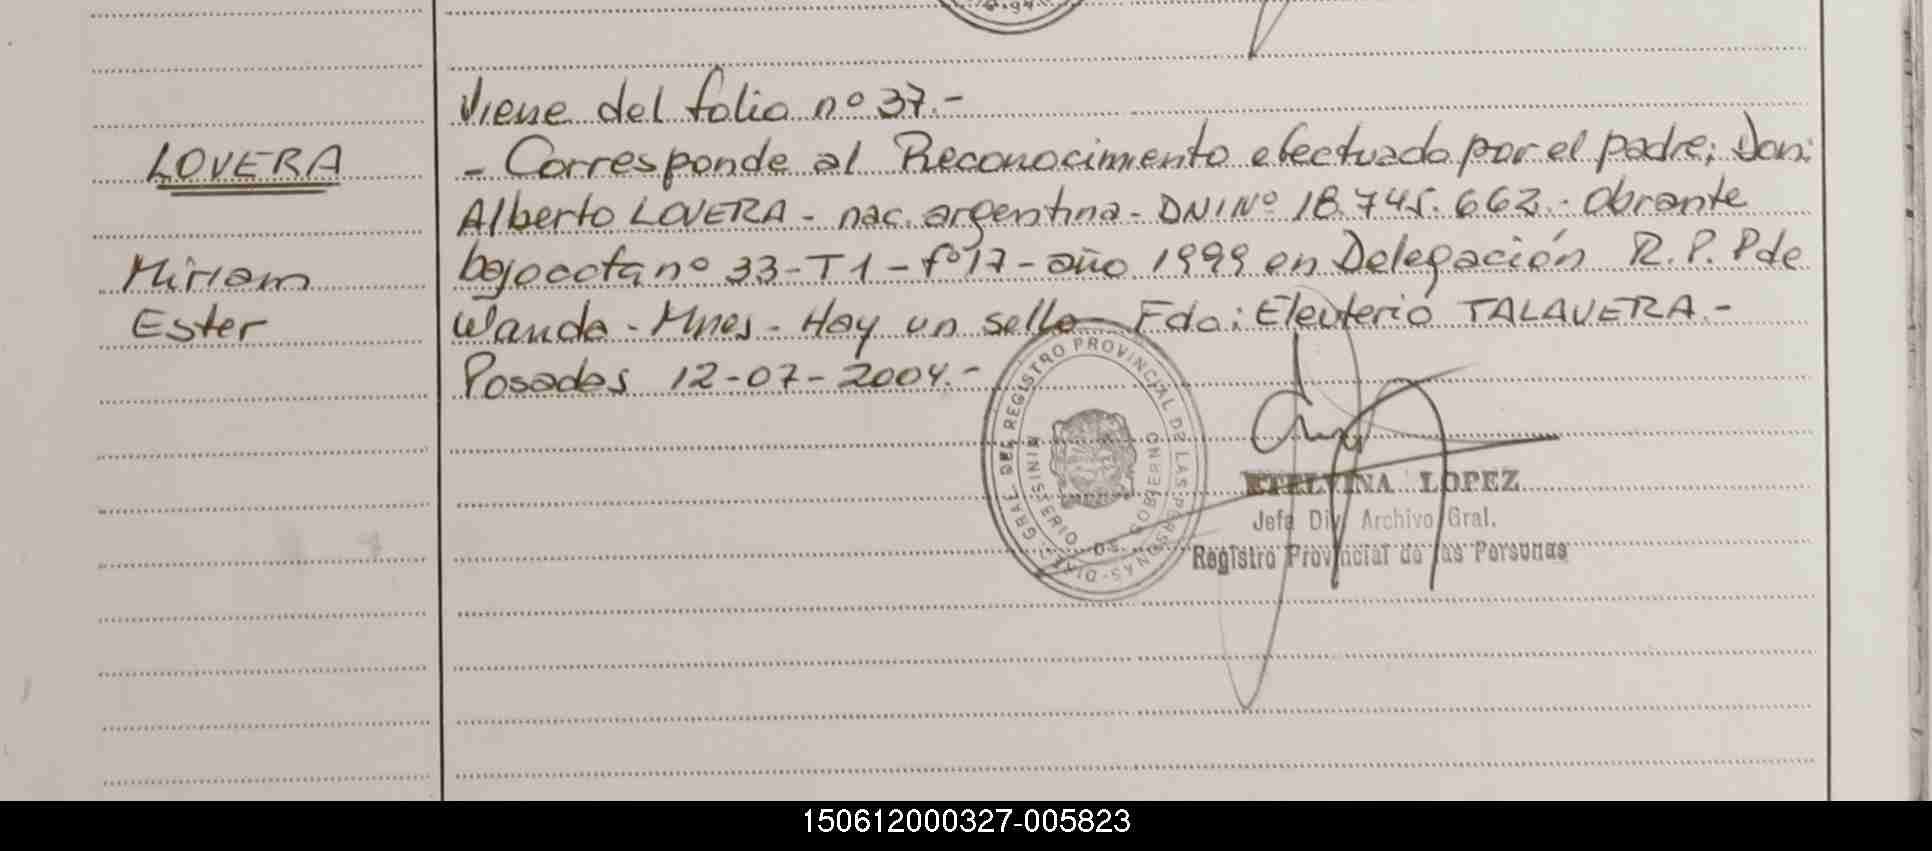 LOVERA
Miriam
Ester
Viene del folio nº 37.-
- Corresponde al Reconocimiento efectuado por el padre; Don:
Alberto LOVERA - nac. argentina - DNI Nº 18.745.662.- Obrante
bajo acta nº 33-T1-fº17-año 1999 en Delegación R.P.P de
Wanda - Mnes - Hay un sello - Fdo: Eleuterio TALAVERA.-
Posadas 12-07-2004.-
DIR. GRAL. DEL REGISTRO PROVINCIAL DE LAS PERSONAS
MINISTERIO DE GOBIERNO
ETELVINA LOPEZ
Jefa Div. Archivo Gral.
Registro Provincial de las Personas
150612000327-005823